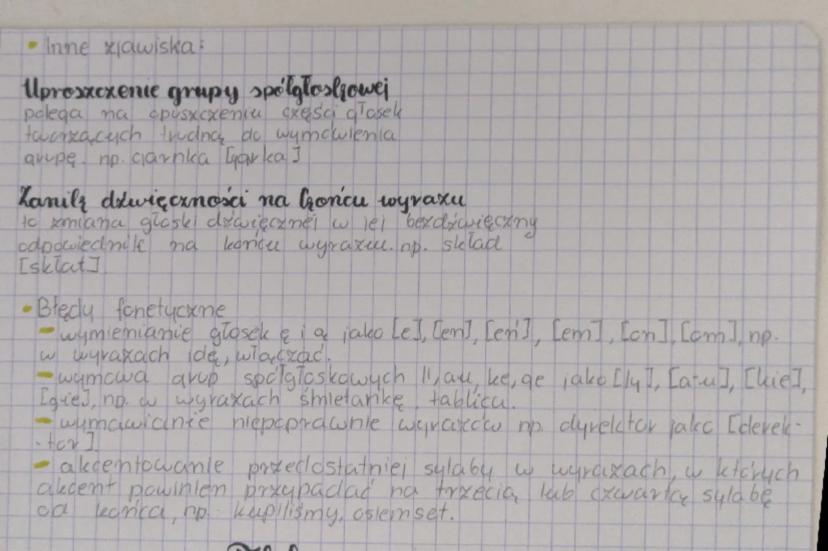 - Inne zjawiska:
Uproszczenie grupy spółgłoskowej
polega na opuszczeniu części głosek
tworzących trudną do wymówienia
grupę. np. ciarnka [garka]
Zanik dźwięczności na końcu wyrazu
to zmiana głoski dźwięcznej w jej bezdźwięczny
odpowiednik na końcu wyrazu. np. skład
[skłat]
- Błędy fonetyczne
- wymienianie głosek ę i ą jako [e], [en], [eń], [em], [on], [om], np.
w wyrazach idę, włączać.
- wymowa grup spółgłoskowych ll, au, ke, ge jako [ly], [a-u], [kie],
[gie], np. w wyrazach śmietankę, tablicu.
- wymawianie niepoprawnie wyrazów np. dyrektor jako [derek-
-tor]
- akcentowanie przedostatniej sylaby w wyrazach, w których
akcent powinien przypadać na trzecią lub czwartą sylabę
od końca, np. kupiliśmy, osiemset.